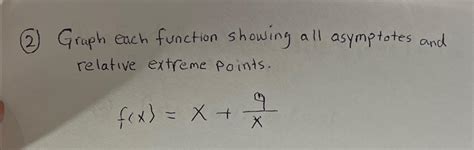 ② Graph each function showing all asymptotes and
relative extreme points.
f(x) = x + 9/x